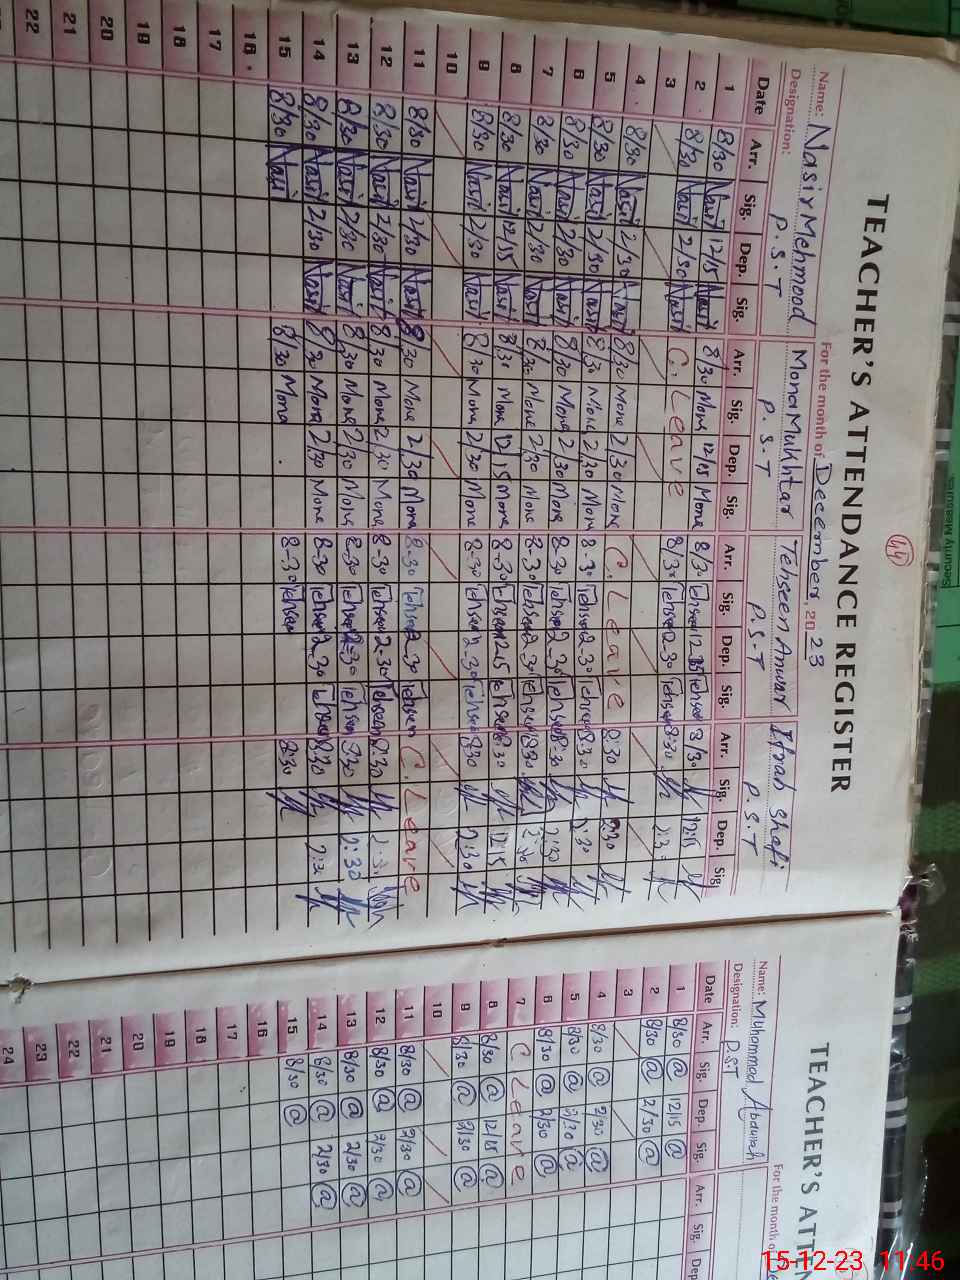 44
TEACHER'S ATTENDANCE REGISTER
For the month of December, 2023
Name: Nasir Mehmood Mona Mukhtar Tehseen Anwar Ifrah Shafi
Designation: P.S.T P.S.T P.S.T P.S.T
Date Arr. Sig. Dep. Sig. Arr. Sig. Dep. Sig. Arr. Sig. Dep. Sig. Arr. Sig. Dep. Sig
1 8/30 Nasir 12/15 Nasir 8/30 Mona 12/15 Mona 8/30 Tehseen 12 15 Tehseen 8/30 12:15
2 8/30 Nasir 2/30 Nasir C. Leave 8/30 Tehseen 2-30 Tehseen 8:30 2:30
3
4 8/30 Nasir 2/30 Nasir 8/30 Mona 2/30 Mona C. Leave 8:30 2:30
5 8/30 Nasir 2/30 Nasir 8/30 Mona 2/30 Mona 8-30 Tehseen 2-30 Tehseen 8:30 2:30
6 8/30 Nasir 2/30 Nasir 8/30 Mona 2/30 Mona 8-30 Tehseen 2-30 Tehseen 8:30 2:30
7 8/30 Nasir 2/30 Nasir 8/30 Mona 2/30 Mona 8-30 Tehseen 2-30 Tehseen 8:30 2:30
8 8/30 Nasir 12/15 Nasir 8/30 Mona 12/15 Mona 8-30 Tehseen 12-15 Tehseen 8:30 12:15
9 8/30 Nasir 2/30 Nasir 8/30 Mona 2/30 Mona 8-30 Tehseen 2-30 Tehseen 8:30 2:30
10
11 8/30 Nasir 2/30 Nasir 8/30 Mona 2/30 Mona 8-30 Tehseen 2-30 Tehseen C. Leave
12 8/30 Nasir 2/30 Nasir 8/30 Mona 2/30 Mona 8-30 Tehseen 2-30 Tehseen 8:30 2:30
13 8/30 Nasir 2/30 Nasir 8/30 Mona 2/30 Mona 8-30 Tehseen 2-30 Tehseen 8:30 2:30
14 8/30 Nasir 2/30 Nasir 8/30 Mona 2/30 Mona 8-30 Tehseen 2-30 Tehseen 8:30
15 8/30 Nasir 8/30 Mona 8-30 Tehseen 8:30
16
17
18
19
20
21
22
TEACHER'S ATTEN
For the month o
Name: Muhammad Abdullah
Designation: P.S.T
Date Arr. Sig. Dep. Sig. Arr. Sig. Dep
1 8/30 @ 12/15 @
2 8/30 @ 2/30 @
3
4 8/30 @ 2/30 @
5 8/30 @ 2/30 @
6 8/30 @ 2/30 @
7 C. Leave
8 8/30 @ 12/15 @
9 8/30 @ 2/30 @
10
11 8/30 @ 2/30 @
12 8/30 @ 2/30 @
13 8/30 @ 2/30 @
14 8/30 @ 2/30 @
15 8/30 @
16
17
18
19
20
21
22
23
24
15-12-23 11:46